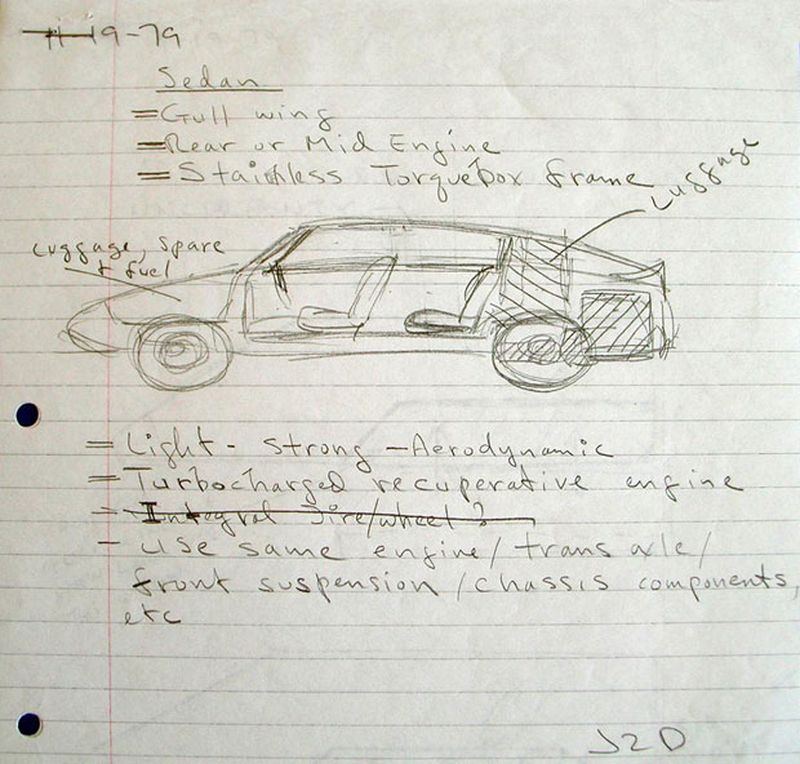 11-19-79
Sedan
= Gull wing
= Rear or Mid Engine
= Stainless Torquebox frame
Luggage
Luggage, spare
+ fuel
= Light - strong - Aerodynamic
= Turbocharged recuperative engine
- Integral Tire/wheel?
- use same engine/trans axle/
front suspension/chassis components,
etc
JZD